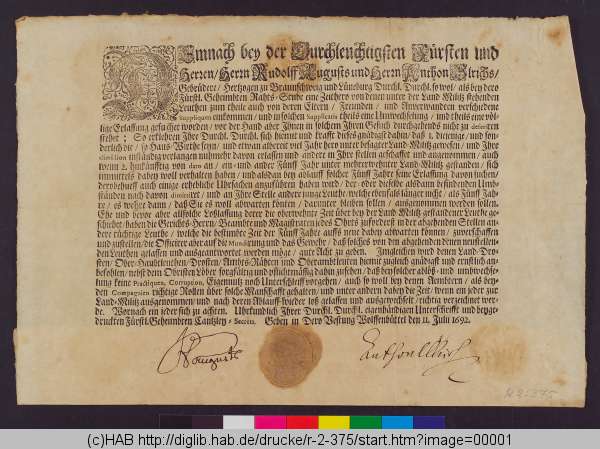 Demnach bey der Durchleuchtigsten Fürsten und
Herren/ Herrn Rudolff Augusts und Herrn Anthon Ulrichs/
Gebrüdere/ Hertzogen zu Braunschweig und Lüneburg Durchl. Durchl. so wol/ als bey dero
Fürstl. Geheimbten Rahts-Stube eine Zeithero von denen unter der Land-Militz stehenden
Leuthen zum theile auch von deren Eltern/ Freunden/ und Anverwandten verschiedene
Suppliquen einkommen/ und in solchen Supplicatis theils eine Umbwechselung/ und theils eine völ-
lige Erlassung gesuchet worden/ vor der Hand aber Ihnen in solchem Ihren Gesuch durchgehends nicht zu
stehet: So erklehren Ihro Durchl. Durchl. sich hiemit und krafft dieses gnädigst dahin/ daß 1. diejenige/ und son-
derlich die/ so Haus-Wirthe seyn/ und etwan allbereit vier Jahr hero unter besagter Land-Militz gewesen/ und Ihre
dimission inständig verlangen nunmehr davon erlassen und andere in Ihre stellen geschaffet und angenommen/ auch
wenn 2. hinkünfftig von dato an/ ein- und ander Fünff Jahr unter mehrerwehnter Land-Militz gestanden/ sich
immittelst dabey woll verhalten haben/ und alsdan bey ablauff solcher Fünff Jahre seine Erlassung davon suchen/
derobehueff auch einige erhebliche Uhrsachen anzuführen haben wird/ der- oder dieselbe alsdann befindenden Umb-
ständen nach davon dimittirt/ und an Ihre Stelle andere junge Leuthe/ welche ebenfals länger nicht/ als Fünff Jah-
re/ es wehre dann/ daß Sie es woll abwarten könten/ darunter bleiben sollen/ ausgenommen werden sollen.
Ehe und bevor aber allsolche Loßlassung derer die obbemelte Zeit über bey der Land-Militz gestandener Leuthe ge-
schiehet/ haben die Gerichts-Herrn/ Beambte und Magistraten jedes Ohrts zuforderst in der abgehenden Stellen an-
dere tüchtige Leuthe/ welche die bestimbte Zeit der Fünff Jahre auffs neue dabey abwarten können/ zuverschaffen
und zustellen/ die Officirer aber auff die Mundirung und das Gewehr/ daß solches von den abgehenden denen neustellen-
den Leuthen gelassen und ausgeantwortet werden möge/ gute Acht zu geben. Imgleichen wird denen Land-Dro-
sten/ Ober-Haubtleuthen/ Drosten/ Ambts-Rähten und Oberambtleuten hiemit zugleich gnädigst und ernstlich an-
befohlen/ nebst dem Obristen Löber sorgfältig und pflichtmäßig dahin zusehen/ daß bey solcher ablöß- und umbwechse-
lung keine Practiquen, Corruption, Eigennutz noch Unterschleiff vorgehen/ auch so woll bey denen Aembtern/ als bey
den Compagnien richtige Rollen über solche Manschafft gehalten/ und unter andern dabey die Zeit/ wenn ein jeder zur
Land-Militz ausgenommen/ und nach deren Ablauff wieder loß gelassen und ausgewechselt/ richtig verzeichnet wer-
de. Wornach ein jeder sich zu achten. Uhrkundlich Ihrer Durchl. Durchl. eigenhändigen Unterschrifft und beyge-
druckten Fürstl. Geheimbten Cantzley-Secrets. Geben in Dero Vestung Wolffenbüttel den 11. Julii 1692.
RAugustH
AnthonUlrich
R 2:375
(c)HAB http://diglib.hab.de/drucke/r-2-375/start.htm?image=00001